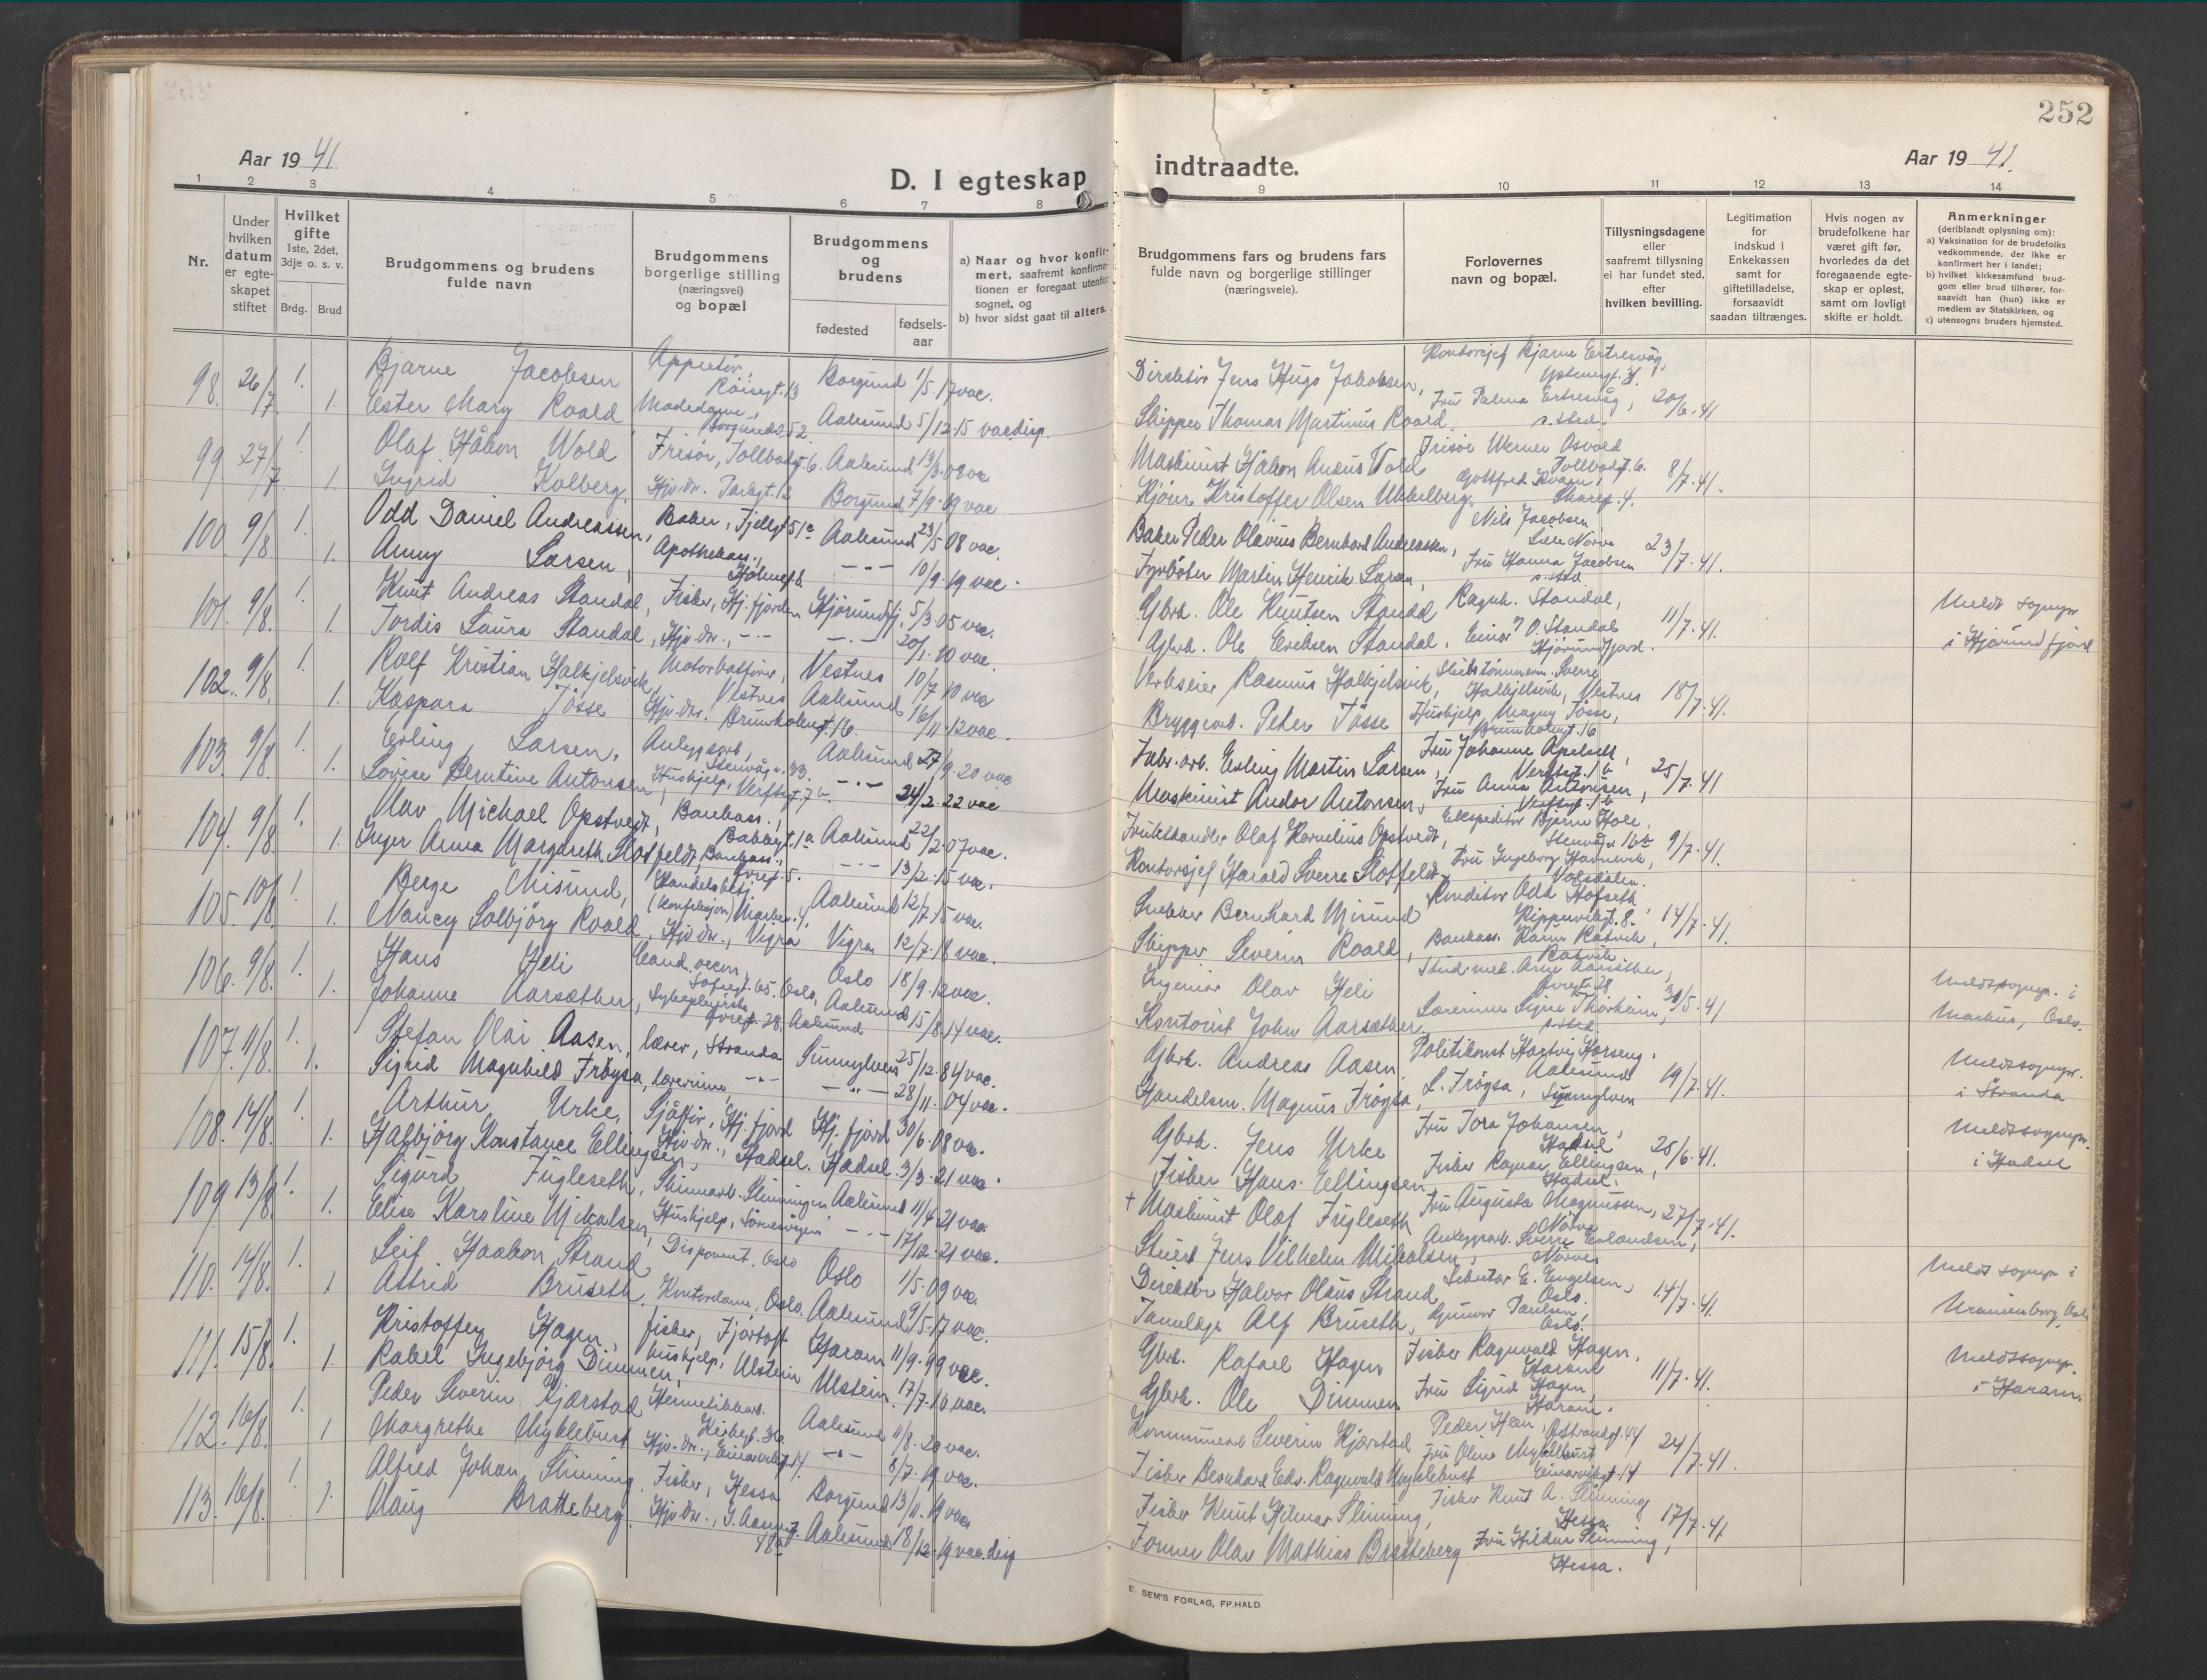 252
Aar 19 41.
D. I egteskap
indtraadte.
Aar 19 41.
1 2 3 4 5 6 7 8 9 10 11 12 13 14
Nr.
Under hvilken datum er egteskapet stiftet
Hvilket gifte 1ste, 2det, 3dje o. s. v.
Brdg. Brud
Brudgommens og brudens fulde navn
Brudgommens borgerlige stilling (næringsvei) og bopæl
Brudgommens og brudens
fødested
fødsels-aar
a) Naar og hvor konfirmert, saafremt konfirmationen er foregaat utenfor sognet, og
b) hvor sidst gaat til alters.
Brudgommens fars og brudens fars fulde navn og borgerlige stillinger (næringsveie).
Forlovernes navn og bopæl.
Tillysningsdagene eller saafremt tillysning ei har fundet sted, efter hvilken bevilling.
Legitimation for indskud i Enkekassen samt for giftetilladelse, forsaavidt saadan tiltrænges.
Hvis nogen av brudefolkene har været gift før, hvorledes da det foregaaende egteskap er opløst, samt om lovligt skifte er holdt.
Anmerkninger (deriblandt oplysning om):
a) Vaksination for de brudefolks vedkommende, der ikke er konfirmert her i landet;
b) hvilket kirkesamfund brudgom eller brud tilhører, forsaavidt han (hun) ikke er medlem av Statskirken, og
c) utensogns bruders hjemsted.
98. 26/7 1. Bjarne Jacobsen Appretør, Borgund 1/5.17 vac. Direktør Jens Hugo Jakobsen, Kontorsjef Bjarne Ertresvåg,
1. Ester Mary Roald Aalesund 5/12.15 vac. disp. Skipper Thomas Martinius Roald Fru Palma Ertresvåg, s.sted. 20/6.41
99 27/7 1. Olaf Håkon Wold Frisør, Tollbodgt. 6. Aalesund vac Maskinist Håkon Wold Frisør Werner Osvald Tollbodgt. 6.
1. Ingrid Kolberg. Hjv. dr. Borgund 7/9.09 vac Kjører Kristoffer Olsen Gottfred 8/7.41.
100. 9/8 1. Odd Daniel Andreassen, Baker, Fjellgt 51a Aalesund 23/5 08 vac. Baker Peder Olavius Bernhard Andreassen, Nils Jacobsen
1. Anny Larsen, Apothekass., —"— 10/9.19 vac. Fyrbøter Martin Henrik Larsen, Fru Hanna Jacobsen s.sted 23/7.41.
101. 9/8. 1. Knut Andreas Standal, Fisker, Hj. fjorden Hjørundfj. 5/3.05 vac. Gbrk. Ole Knutsen Standal Ragnh. Standal, Meldt sognepr
1. Jordis Laura Standal, Hjv. dr., —"— —"— 20/1.10 vac. Gbrk. Ole Eriksen Standal, Einar O. Standal Hjørundfjord. 11/7.41. i Hjørundfjord
102. 9/8. 1. Rolf Kristian Halkjelsvik, Motorbåtfører, Vestnes Vestnes 10/7 10 vac Verkseier Rasmus Halkjelsvik, Sverre Halkjelsvik, Vestnes
1. Kaspara Tøsse Hjv. dr. Brunholmgt. 16. Aalesund 16/11.12 vac. Bryggearb. Peter Tøsse Hushjelp Magny Tøsse, Brunholmgt. 16 18/7.41.
103. 9/8. 1. Erling Larsen, Anleggsarb., Aalesund 27/9.20 vac Fabr. arb. Erling Martin Larsen, Fru Johanne Apelseth,
1. Lovise Berntine Antonsen, Hushjelp, Verftsgt. 7 —"— 24/2.22 vac Maskinist Andor Antonsen, Fru Anna Antonsen, 25/7.41
104. 9/8. 1. Olav Michael Opstvedt, Bankass., Aalesund 22/2.07 vac. Frukthandler Olaf Kornelius Opstvedt, Ekspeditør Bjarne Hole,
1. Inger Anna Margareth Slotfeldt, Bankass., —"— 13/2.15 vac. Kontorsjef Harald Sverre Slotfeldt Fru Ingeborg Volsdalen. 9/7.41.
105. 10/8. 1. Berge Misund, Handelsbetj. (konfeksjon) Aalesund 12/7.15 vac. Snekker Bernhard Misund Konditor Odd Hofseth,
1. Nancy Solbjørg Roald, Hjv. dr., Vigra Vigra 12/7.18 vac. Skipper Severin Roald, Bankass. Karin Ratvik, Ratvik 14/7.41.
106. 9/8. 1. Hans Heli Cand. oecon. Sofiegt. 65. Oslo, Oslo 18/9.12 vac. Ingeniør Olav Heli Stud. med. Arne Aarsæther, Meldt sognepr. i
1. Johanne Aarsæther, Sykepleierske Aalesund Aalesund 15/8.14 vac. Kontorist John Aarsæther, Lærerinne Signe s.sted. 30/5.41 Markus, Oslo.
107. 11/8. 1. Stefan Olai Aasen, lærer, Stranda Sunnylven 25/12.84 vac. Gbrk. Andreas Aasen Politikonst. Hartvig Aalesund Meldt sognepr.
1. Sigrid Magnhild Frøysa, lærerinne, —"— —"— 28/11.04 vac. Handelsm. Magnus Frøysa, L. Frøysa, Sunnylven 19/7.41. i Stranda
108. 14/8. 1. Arthur Urke, Sjåfør, Hj. fjord Hj. fjord 30/6.08 vac. Gbrk. Jens Urke Fru Tora Johansen, Hadsel Meldt sognepr.
1. Halbjørg Konstance Ellingsen, Hjv. dr., Hadsel. Hadsel. 3/3.21 vac. Fisker Hans Ellingsen Fisker Ragnar Ellingsen, Hadsel. 25/6.41. i Hadsel
109. 13/8. 1. Sigurd Fugleseth, Aalesund 11/4 21 vac + Maskinist Olaf Fugleseth Fru Augusta Magnussen, Nørve
1. Elise Karoline Mikalsen, Hushjelp, —"— 17/12.21 vac. Stuert Jens Vilhelm Mikalsen, Anleggsarb. Sverre Erlandsen, Nørve 27/7.41.
110. 14/8. 1. Leif Haakon Strand Disponent, Oslo Oslo 1/5.09 vac. Direktør Halvor Olaus Strand Lektor E. Engelsen, Oslo. Meldt sognepr i
1 Astrid Bruseth, Kontordame, Oslo. Aalesund 9/5.17 vac. Tannlege Alf Bruseth, Gunvor Paulsen, Oslo. 14/7.41. Uranienborg, Oslo
111. 15/8. 1. Kristoffer Hagen, fisker, Fjørtoft Haram 11/9.99 vac. Gbrk. Rafael Hagen Fisker Ragnvald Hagen, Haram Meldt sognepr.
1. Rakel Ingebjørg Dimmen, hushjelp, Ulstein Ulstein. 17/7.16 vac. Gbrk. Ole Dimmen Fru Sigrid Hagen, Haram. 11/7.41. i Haram.
112. 16/8. 1. Peder Severin Kjærstad Hermetikkarb. Kirkegt. Aalesund 11/8.20 vac. Kommunearb Severin Kjærstad Peder
1 Margrethe Myklebust Hjv. dr., —"— 8/7.19 vac. Fisker Bernhard Edv. Ragnvald Myklebust Fru Oline Myklebust 24/7.41.
113. 16/8. 1. Alfred Johan Slinning, Fisker, Hessa Borgund 13/11.19 vac Fisker Knut Hilmar Slinning, Fisker Knut A. Slinning, Hessa
1. Olaug Bratteberg. Hjv. dr., Aalesund 18/12.19 vac. disp Former Olav Mathias Bratteberg Fru Hildur Slinning, Hessa. 17/7.41
E. SEM'S FORLAG, FR.HALD